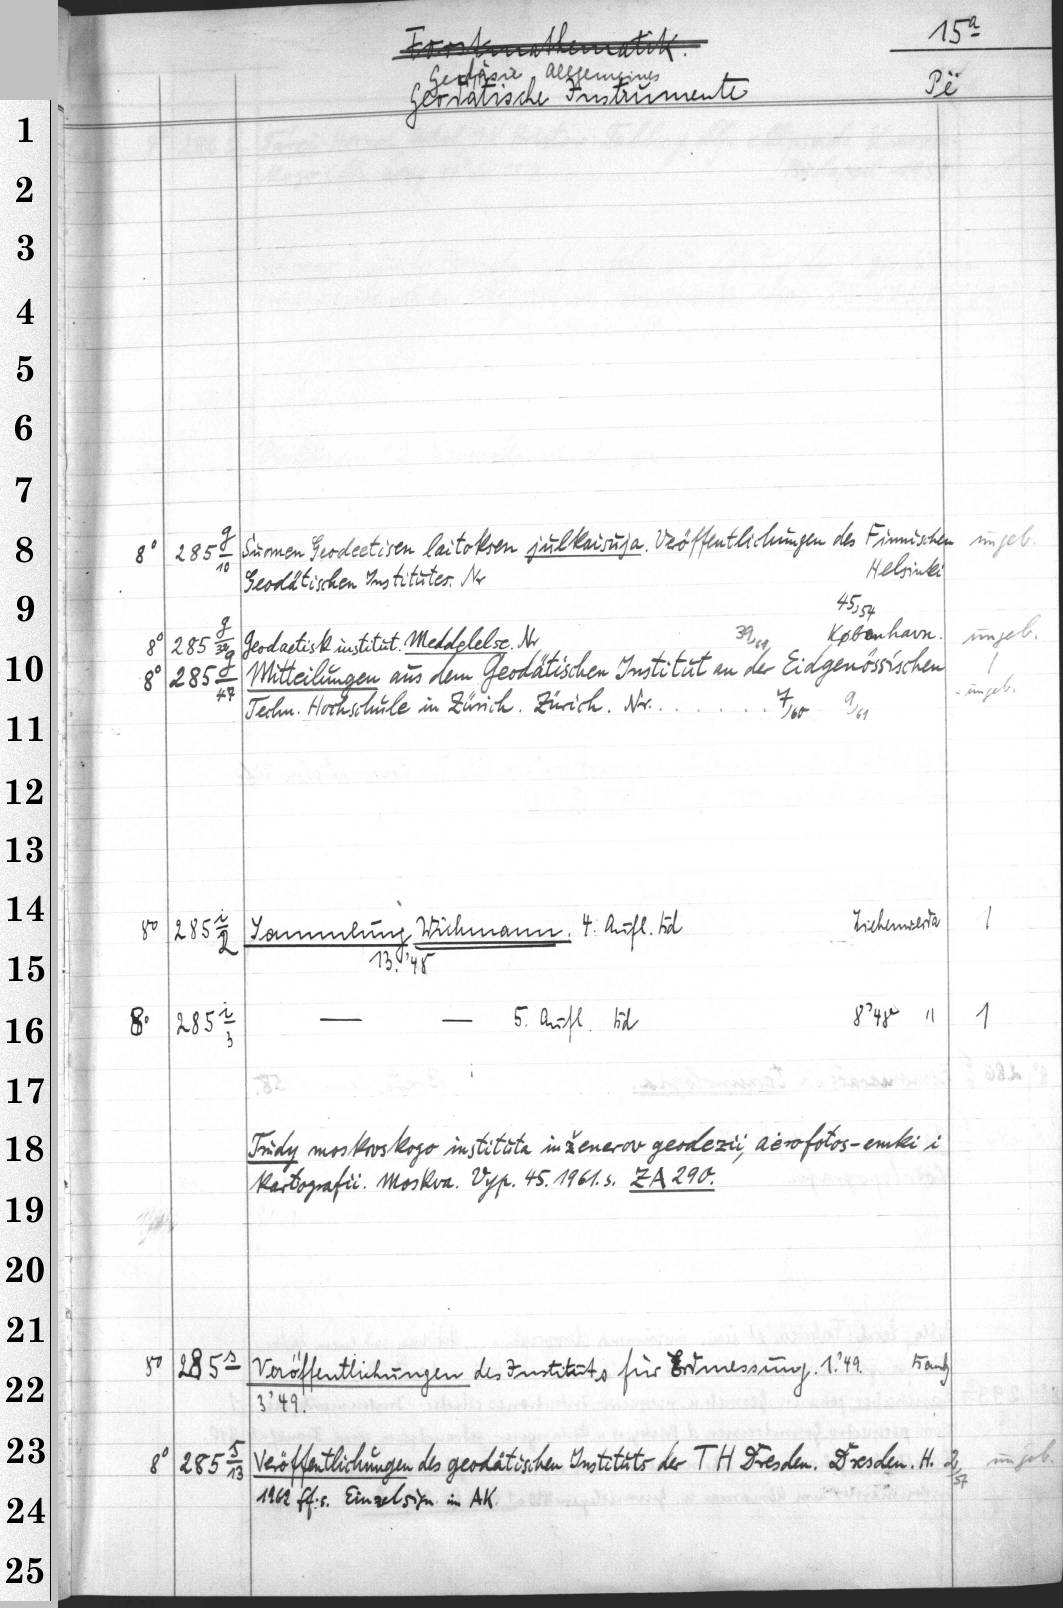 15a
Forstmathematik.
Geodäsie Allgemeines
Geodätische Instrumente
Pë
1
2
3
4
5
6
7
8
8° 285 g/10 Suomen Geodeetisen laitoksen julkaisuja. Veröffentlichungen des Finnischen ungeb.
Geodätischen Institutes. Nr Helsinki
9
45,54
8° 285 g/32 Geodaetisk institut. Meddelelse. Nr 39/61 København. ungeb.
10
8° 285 g/47 Mitteilungen aus dem Geodätischen Institut an der Eidgenössischen 1
Techn. Hochschule in Zürich. Zürich. Nr. . . . . . . 7/60 9/61 ungeb.
11
12
13
14
8° 285 i/2 Sammlung Wichmann. 4. Aufl. Bd Liebenwerda 1
13.'48
15
16
8° 285 i/3 — — 5. Aufl. Bd 8°'48 " 1
17
18
Trudy moskovskogo instituta inženerov geodezii, aėrofotos-emki i
kartografii. Moskva. Vyp. 45. 1961. s. ZA 290.
19
20
21
8° 285 s Veröffentlichungen des Instituts für Erdmessung. 1.'49. Bamb
22
3'49.
23
8° 285 s/13 Veröffentlichungen des geodätischen Instituts der TH Dresden. Dresden. H. 2/57 ungeb.
24
1962 ff. s. Einzelsign. in AK.
25